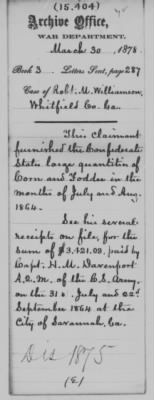 (15.404)
Archive Office,
WAR DEPARTMENT.
March 30, 1878.
Book 3 Letters Sent, page 287
Case of Robt. M. Williamson,
Whitfield Co. Ga.
This claimant
furnished the Confederate
States large quantities of
Corn and Fodder in the
months of July and Aug.
1864.
See his several
receipts on file, for the
sum of $3,421.09, paid by
Capt. H. M. Davenport
A.Q.M. of the C.S. Army,
on the 31st July and 22d
September 1864 at the
City of Savannah, Ga.
Dis 1875